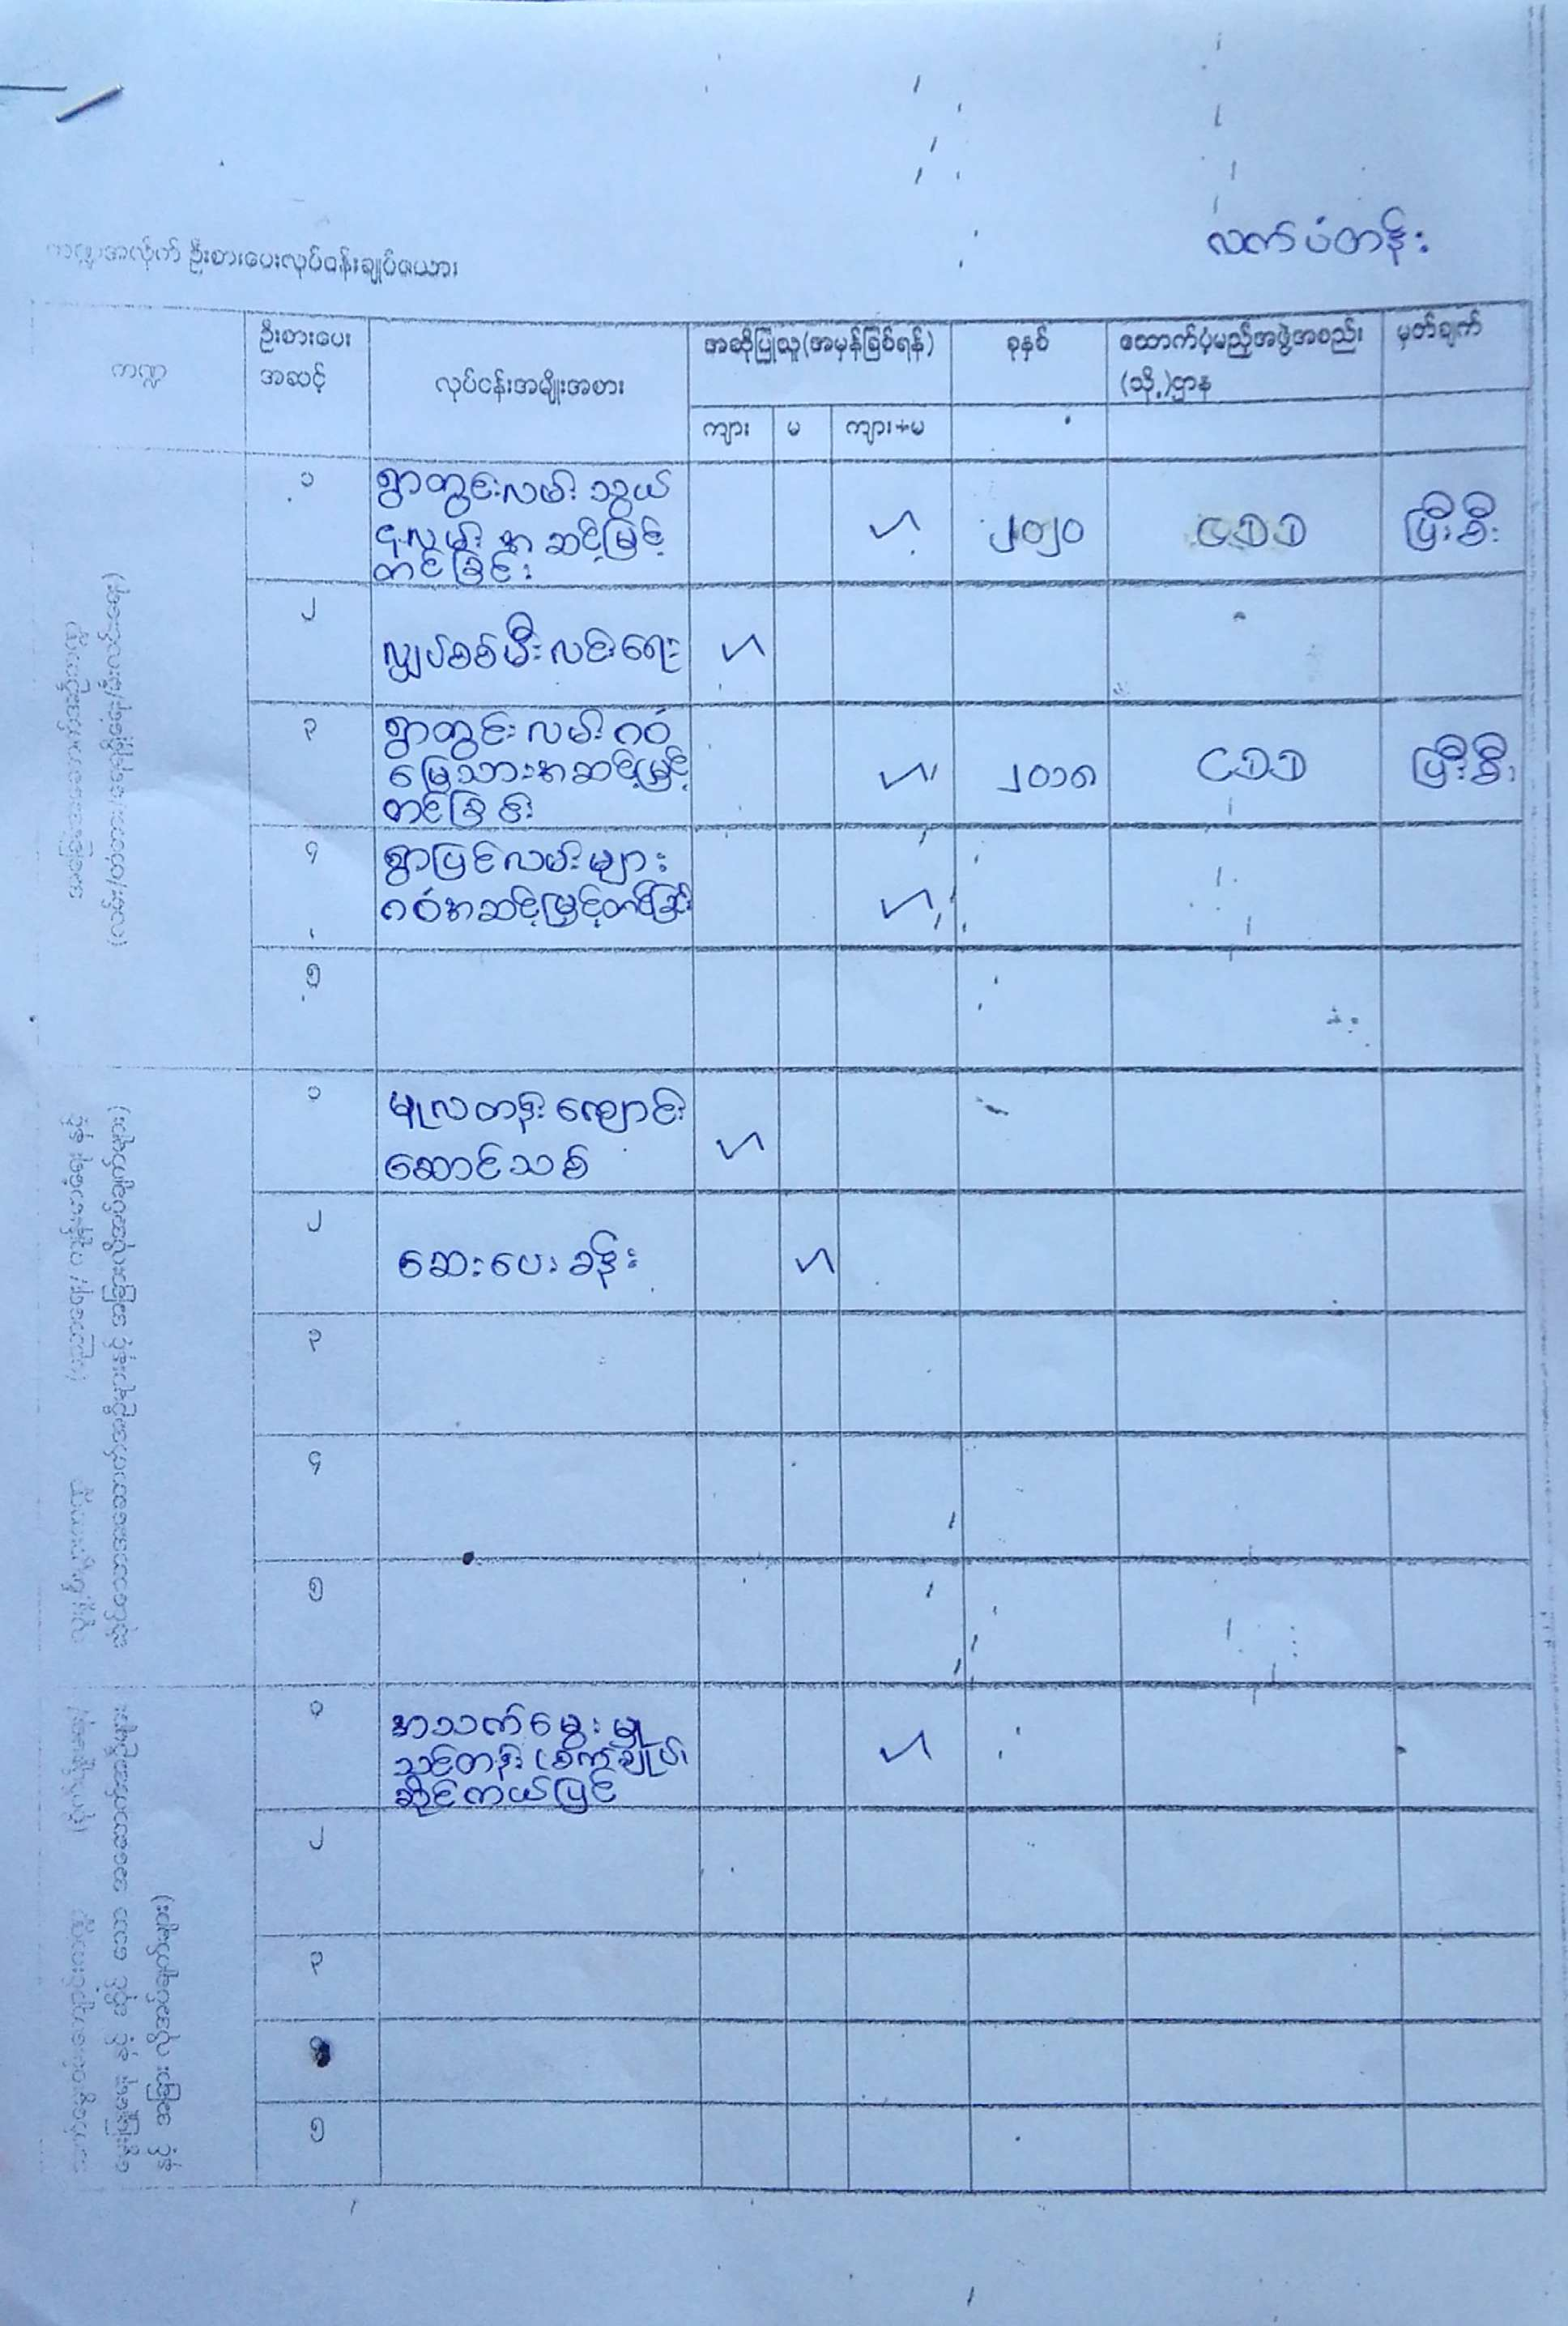 လက်ပံတန်း
ကဏ္ဍအလိုက် ဦးစားပေးလုပ်ငန်းချုပ်ဇယား
ကဏ္ဍ
ဦးစားပေး
အဆင့်
လုပ်ငန်းအမျိုးအစား
အဆိုပြုသူ(အမှန်ခြစ်ရန်)
ခုနှစ်
ထောက်ပံ့မည့်အဖွဲ့အစည်း
(သို့)ဌာန
မှတ်ချက်
ကျား
မ
ကျား+မ
၁
ရွာတွင်းလမ်း သွယ်
၄ လမ်း အဆင့်မြှင့်
တင်ခြင်း
၂၀၂၀
CDD
ပြီးစီး
၂
လျှပ်စစ်မီးလင်းရေး
၃
ရွာတွင်းလမ်း ဂဝံ
မြေသားအဆင့်မြှင့်
တင်ခြင်း
၂၀၁၈
CDD
ပြီးစီး
၄
ရွာပြင်လမ်းများ
ဂဝံအဆင့်မြှင့်တင်ခြင်း
၅
၁
မူလတန်းကျောင်း
ဆောင်သစ်
၂
ဆေးပေးခန်း
၃
၄
၅
၁
အသက်မွေးမှု
သင်တန်း (စက်ချုပ်၊
ဆိုင်ကယ်ပြင်
၂
၃
၅